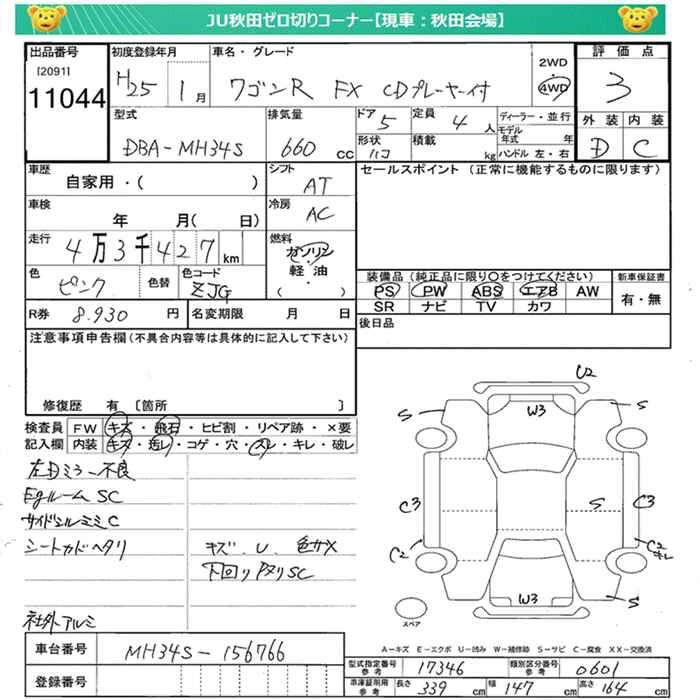 JU秋田ゼロ切りコーナー【現車：秋田会場】
出品番号
[2091]
11044
初度登録年月
H25 1月
車名・グレード
ワゴンR FX CDプレーヤー付
2WD
4WD
評価点
3
外装 内装
D C
型式
DBA-MH34S
排気量
660 CC
ドア 5
形状 ハコ
定員 4 人
積載 kg
ディーラー・並行
モデル年式 年
ハンドル 左・右
車歴
自家用・( )
シフト
AT
セールスポイント (正常に機能するものに限ります)
車検
年 月( 日)
冷房
AC
走行
4万3千427 km
燃料
ガソリン
軽・油
( ・ )
色
ピンク
色替
色コード
ZJG
装備品 (純正品に限り○をつけてください)
PS PW ABS エアB AW
SR ナビ TV カワ
新車保証書
有・無
R券 8.930 円
名変期限 月 日
後日品
注意事項申告欄(不具合内容等は具体的に記入して下さい)
修復歴 有 〔箇所 〕
検査員記入欄
FW キズ・飛石・ヒビ割・リペア跡・×要
内装 キズ・汚レ・コゲ・穴・スレ・キレ・破レ
左Dミラー不良
Egルーム SC
サイドシルミミC
シートカドヘタリ
キズ、U、色ザメ
下回りアタリSC
社外アルミ
U2
W3
S
S
C3
S
C3
C2
C2
キレ
S
S
W3
スペア
A－キズ E－エクボ U－凹み W－補修跡 S－サビ C－腐食 XX－交換済
車台番号
MH34S-156766
登録番号
型式指定番号
参考
17346
類別区分番号
参考
0601
車庫証明用
参考
長さ 339 cm
幅 147 cm
高さ 164 cm